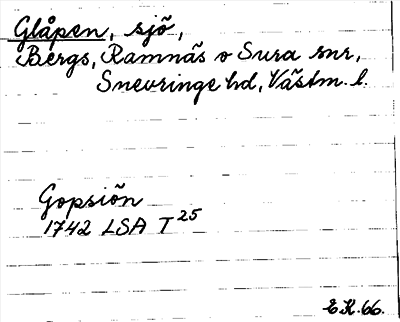 Glåpen, sjö,
Bergs, Ramnäs o Sura snr,
Snevringe hd, Västm. l.
Gopsiön
1742 LSA T 25
E K. 66.